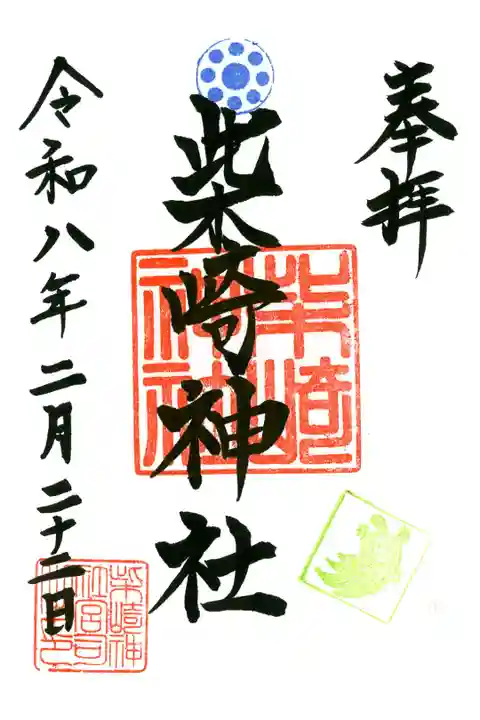 奉拝
柴崎神社
令和八年二月二十二日
柴崎
神社
柴崎神
社宮司
之印